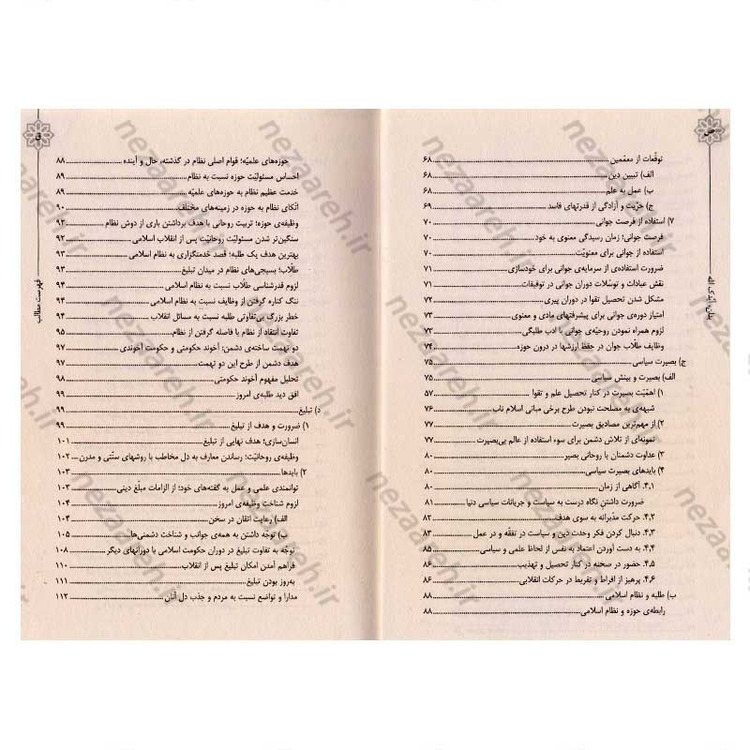 توقّعات از معمّمین ۶۸
الف) تبیین دین ۶۸
ب) عمل به علم ۶۸
ج) حرّیت و آزادگی از قدرتهای فاسد ۶۸
۷) استفاده از فرصت جوانی ۷۰
فرصت جوانی؛ زمان رسیدگی معنوی به خود ۷۰
استفاده از جوانی برای معنویّت ۷۰
ضرورت استفاده‌ی از سرمایه‌ی جوانی برای خودسازی ۷۱
نقش عبادات و توسّلات دوران جوانی در توفیقات ۷۱
مشکل شدن تحصیل تقوا در دوران پیری ۷۲
امتیاز دوره‌ی جوانی برای پیشرفتهای مادی و معنوی ۷۳
لزوم همراه نمودن روحیّه‌ی جوانی با ادب طلبگی ۷۳
وظایف طلّاب جوان در حفظ ارزشها در درون حوزه ۷۴
ج) بصیرت سیاسی ۷۵
الف) بصیرت و بینش سیاسی ۷۵
۱) اهمّیّت بصیرت در کنار تحصیل علم و تقوا ۵۷
شبهه‌ی به مصلحت نبودن طرح برخی مبانی اسلام ناب ۷۶
۲) از مهم‌ترین مصادیق بصیرت ۷۷
نمونه‌ای از تلاش دشمن برای سوء استفاده از عالم بی‌بصیرت ۷۷
۳) عداوت دشمنان با روحانی بصیر ۸۰
۴) بایدهای بصیرت سیاسی ۸۰
۴.۱. آگاهی از زمان ۸۰
ضرورت داشتن نگاه درست به سیاست و جریانات سیاسی دنیا ۸۱
۴.۲. حرکت مدبّرانه به سوی هدف ۸۲
۴.۳. دنبال کردن فکر وحدت دین و سیاست در تفقّه و در عمل ۸۳
۴.۴. به دست آوردن اعتماد به نفس از لحاظ علمی و سیاسی ۸۵
۴.۵. حضور در صحنه در کنار تحصیل و تهذیب ۸۶
۴.۶. پرهیز از افراط و تفریط در حرکات انقلابی ۸۶
ب) طلبه و نظام اسلامی ۸۸
رابطه‌ی حوزه و نظام اسلامی ۸۸
ق
فهرست مطالب
حوزه‌های علمیّه؛ قوام اصلی نظام در گذشته، حال و آینده ۸۸
احساس مسئولیّت حوزه نسبت به نظام ۸۹
خدمت عظیم نظام به حوزه‌های علمیّه ۸۹
اتّکای نظام به حوزه در زمینه‌های مختلف ۹۰
وظیفه‌ی حوزه؛ تربیت روحانی با هدف برداشتن باری از دوش نظام ۹۲
سنگین‌تر شدن مسئولیّت روحانیّت پس از انقلاب اسلامی ۹۲
بهترین هدف یک طلبه؛ قصد خدمتگزاری به نظام اسلامی ۹۳
طلّاب؛ بسیجی‌های نظام در میدان تبلیغ ۹۳
لزوم قدرشناسی طلّاب نسبت به نظام اسلامی ۹۴
ننگ کناره گرفتن از وظایف نسبت به نظام اسلامی ۹۴
خطر بزرگ بی‌تفاوتی طلبه نسبت به مسائل انقلاب ۹۴
تفاوت انتقاد از نظام با فاصله گرفتن از نظام ۹۵
دو تهمت ساخته‌ی دشمن: آخوند حکومتی و حکومت آخوندی ۹۷
هدف دشمن از طرح این دو تهمت ۹۷
تحلیل مفهوم آخوند حکومتی ۹۸
افق دید طلبه‌ی امروز ۹۹
د) تبلیغ ۹۹
۱) ضرورت و هدف از تبلیغ ۹۹
انسان‌سازی؛ هدف نهایی از تبلیغ ۱۰۱
وظیفه‌ی روحانیّت؛ رساندن معارف به دل مخاطب با روشهای سنّتی و مدرن ۱۰۲
۲) بایدها ۱۰۳
توانمندی علمی و عمل به گفته‌های خود؛ از الزامات مبلّغ دینی ۱۰۳
لزوم شناخت وظیفه‌ی امروز ۱۰۴
الف) رعایت اتقان در سخن ۱۰۴
ب) توجّه داشتن به همه‌ی جوانب و شناخت دشمنی‌ها ۱۰۵
توجّه به تفاوت تبلیغ در دوران حکومت اسلامی با دورانهای دیگر ۱۰۸
فراهم آمدن امکان تبلیغ پس از انقلاب ۱۱۰
به‌روز بودن تبلیغ ۱۱۱
مدارا و تواضع نسبت به مردم و جذب دل آنان ۱۱۲
nezaareh.ir